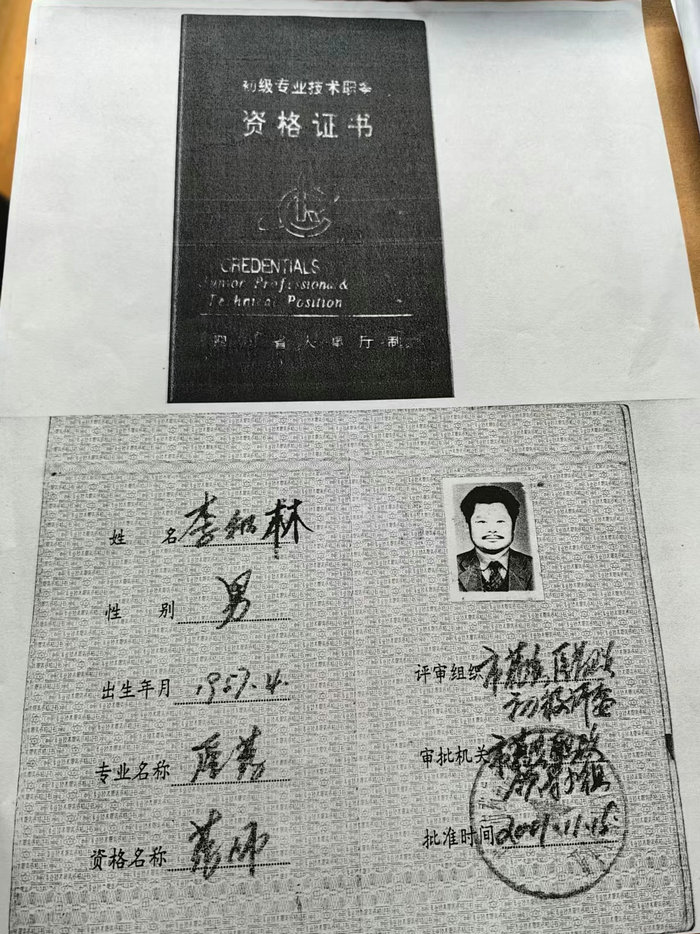 初级专业技术职务
资格证书
CREDENTIALS
Junior Professional &
Technical Position
省人事厅制
姓 名 李 林
性 别 男
出生年月 1957.4.
专业名称 医药
资格名称 药师
评审组织
初级评委
审批机关
批准时间 2001.11.15.